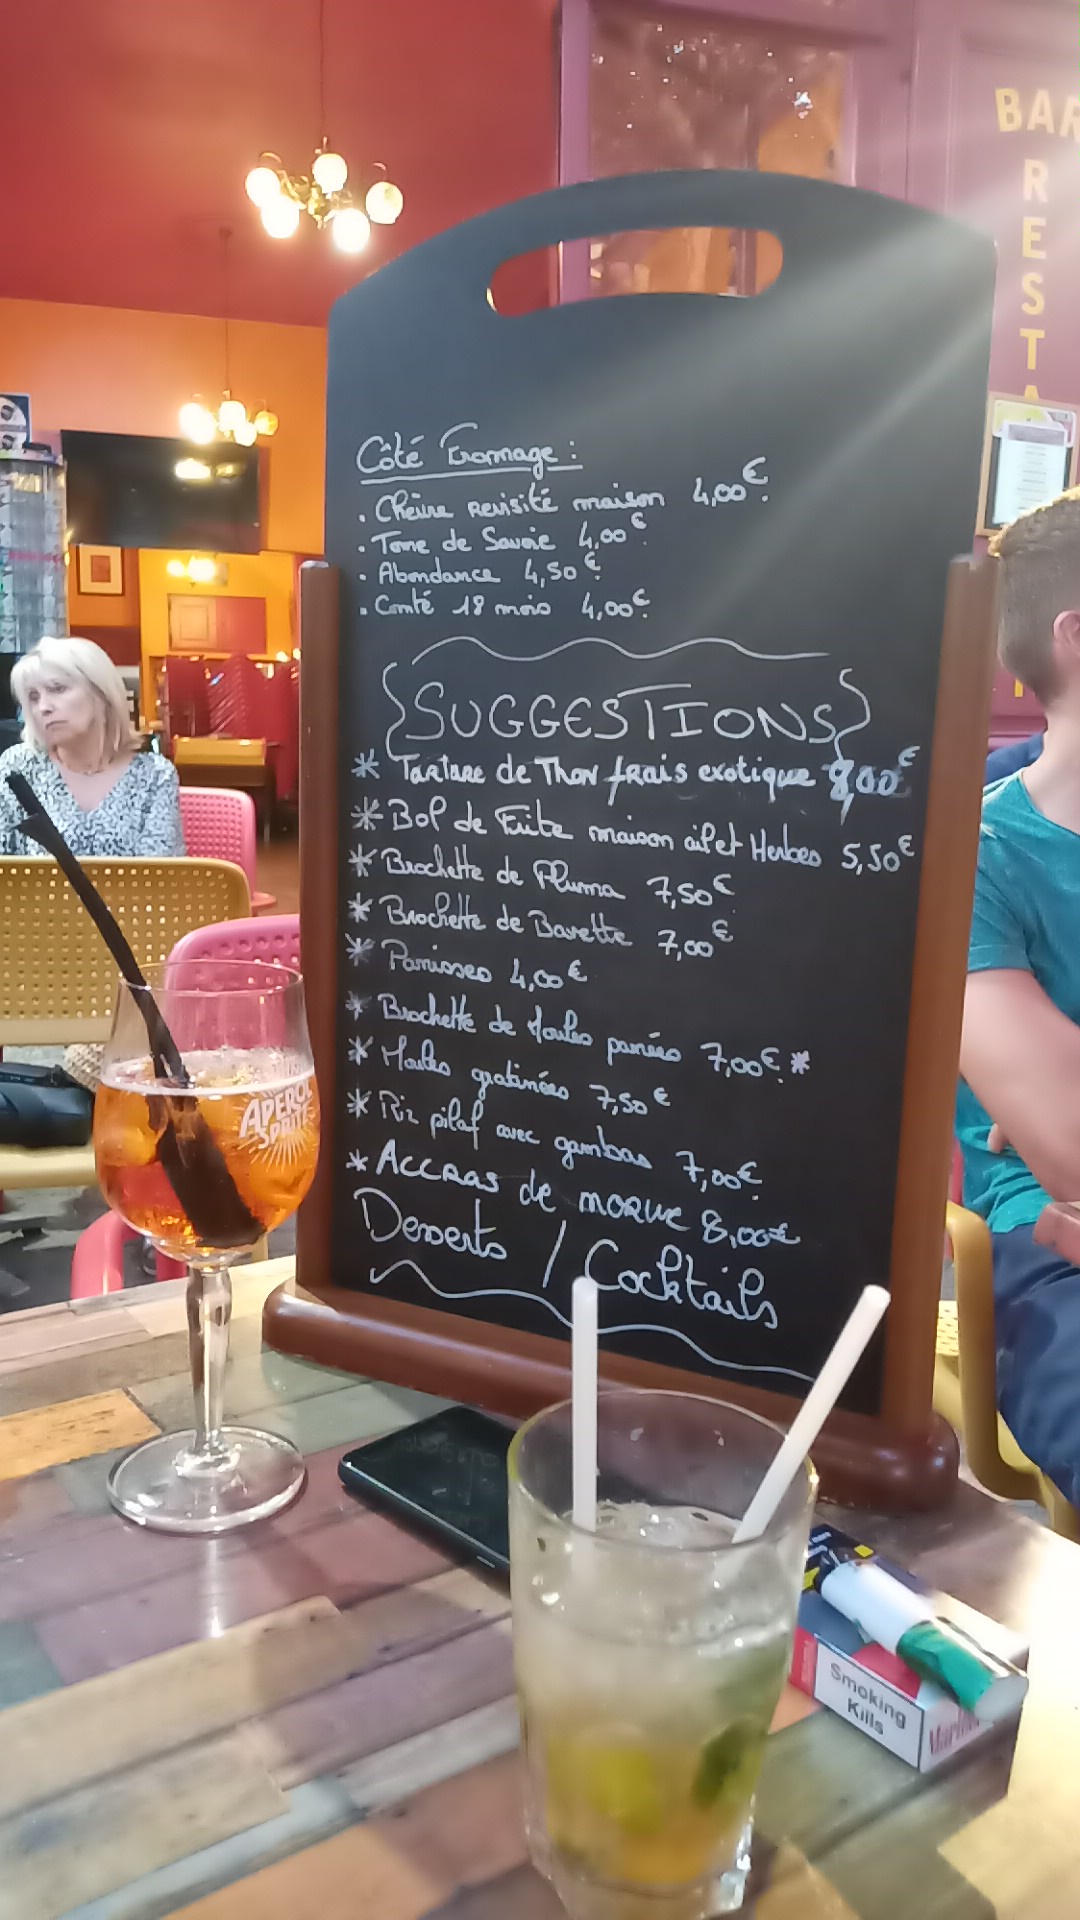 BAR
RESTA
Côté Fromage :
. Chèvre revisité maison 4,00€
. Tome de Savoie 4,00€
. Abondance 4,50€
. Comté 18 mois 4,00€
{SUGGESTIONS}
* Tartare de Thon frais exotique 8,00€
* Bol de Frite maison ail et Herbes 5,50€
* Brochette de Pluma 7,50€
* Brochette de Bavette 7,00€
* Panisses 4,00€
* Brochette de Moules panées 7,00€ *
* Moules gratinées 7,50€
* Riz pilaf avec gambas 7,00€
* ACCRAS de morue 8,00€
Desserts / Cocktails
APEROL
SPRITZ
Smoking
Kills